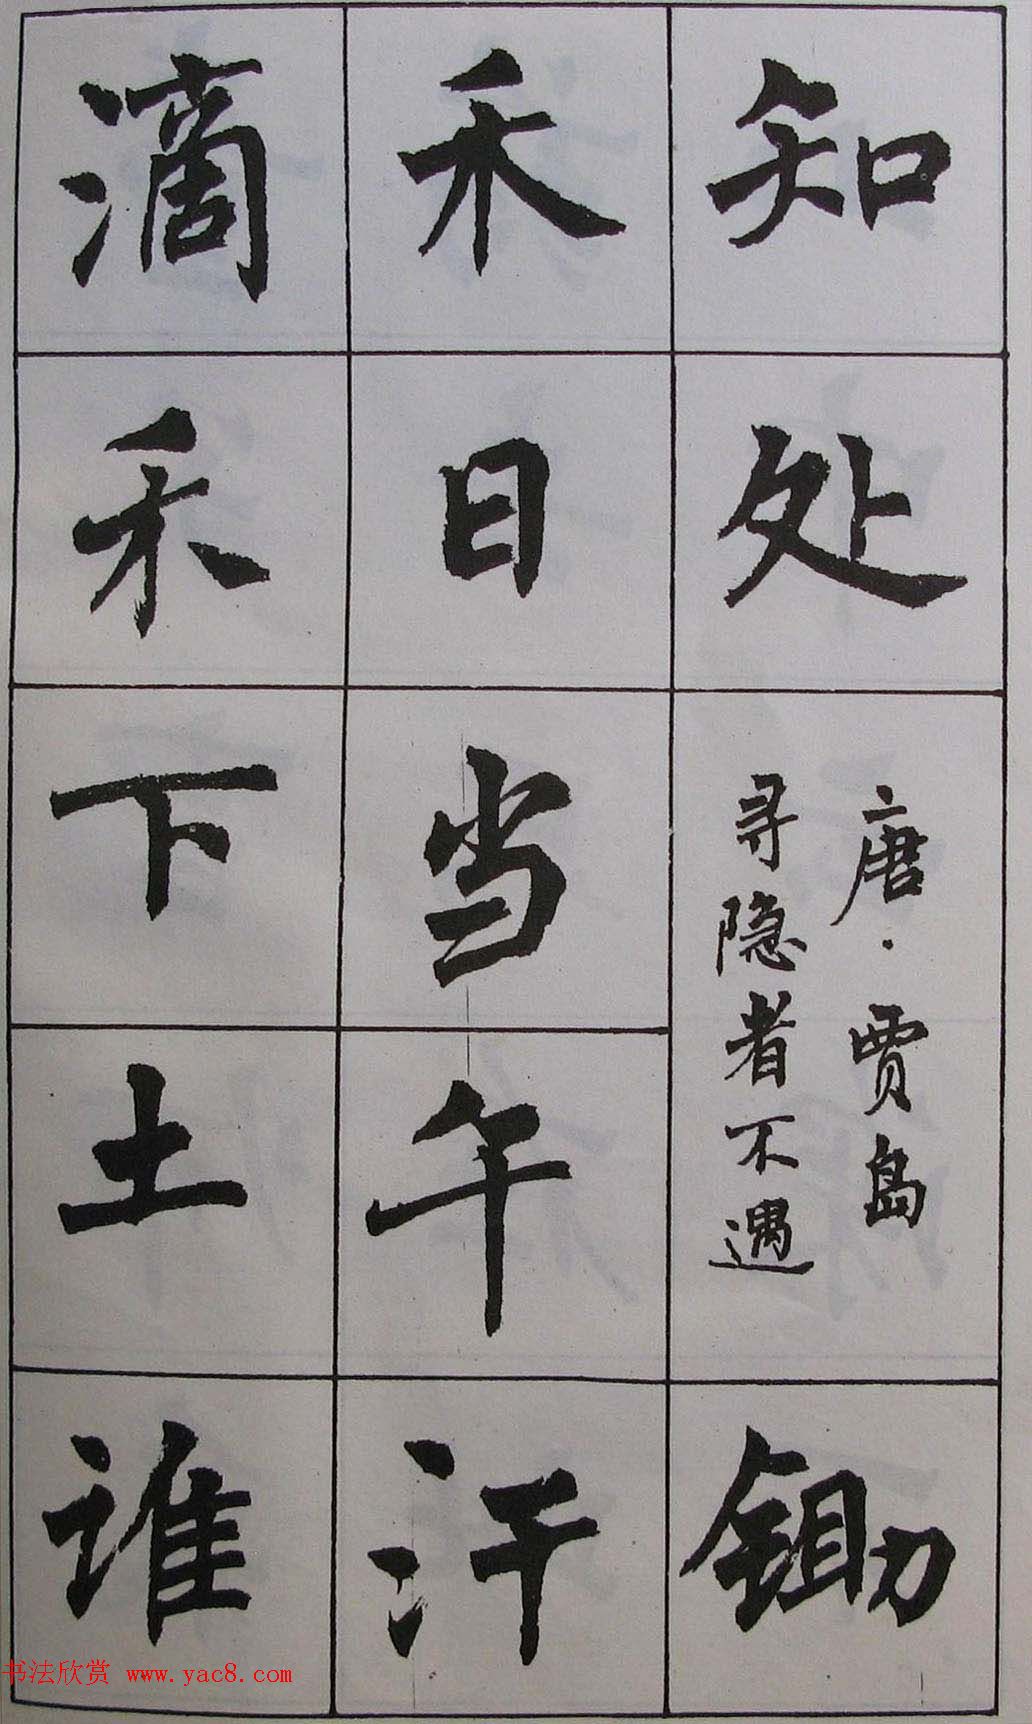 知处
唐·贾岛
寻隐者不遇
锄
禾日当午汗
滴禾下土谁
书法欣赏 www.yac8.com